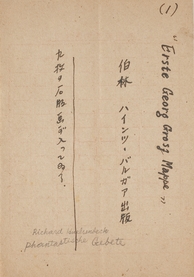 (1)
"Erste Georg Grosz Mappe"
伯林 ハインツ・バルガア出版
九枚の石版画が入つてゐる。
Richard Huelsenbeck
phantastische Gebete